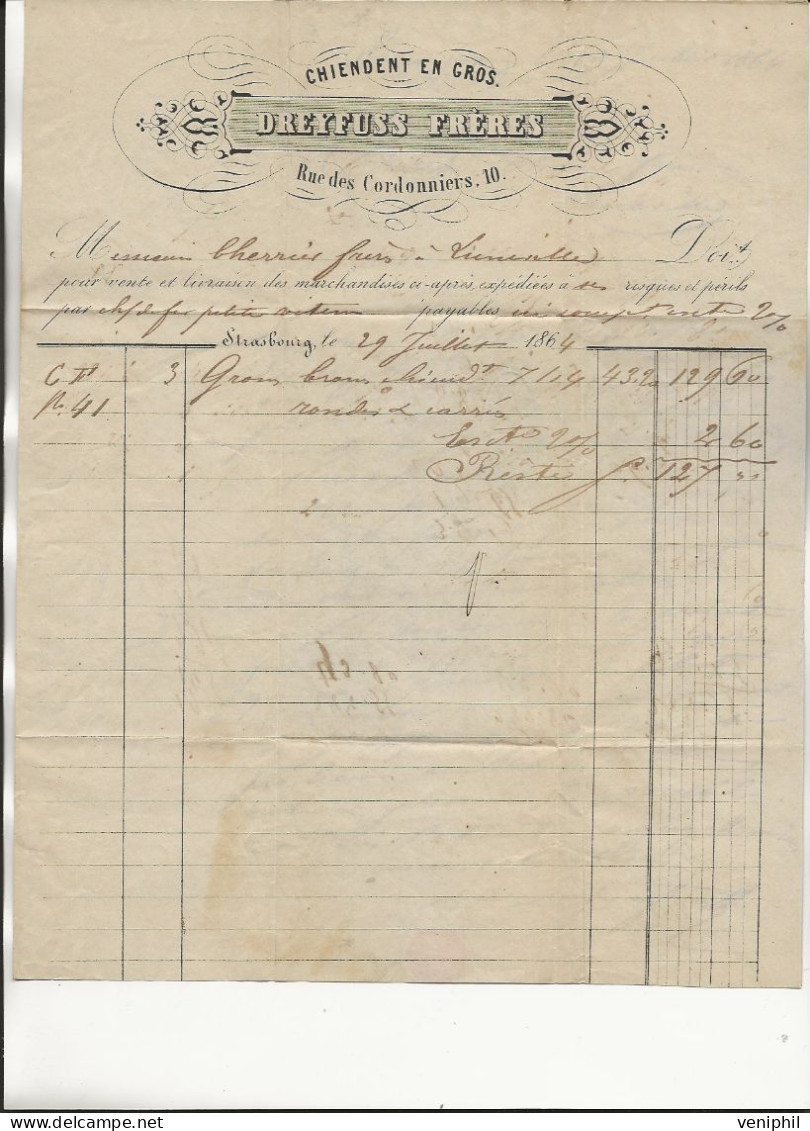 CHIENDENT EN GROS.
DREYFUSS FRÈRES
Rue des Cordonniers, 10.
Messieurs Cherrier frères à Lunéville Doit
pour vente et livraison des marchandises ci-après, expédiées à ses risques et périls
par ch. de fer petite vitesse payables au compt escte 2%
Strasbourg, le 29 Juillet 1864
CF 3 Gross bross chiendt 7/14 43.20 129 60
No 41 rondes & carrés
Escte 2% 2 60
Reste f. 127
www.delcampe.net
veniphil